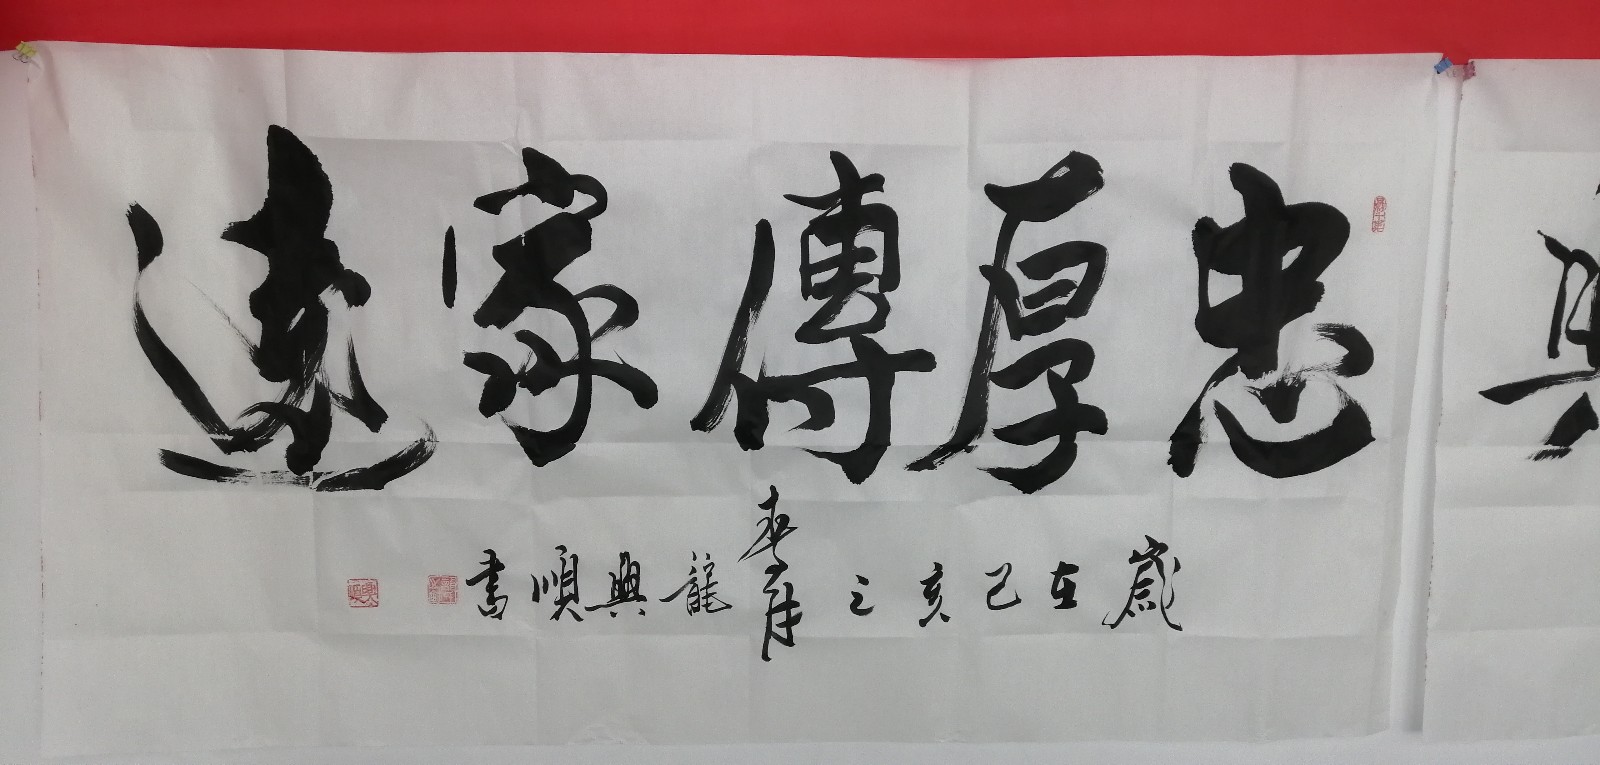 忠厚傳家遠
歲在己亥之春月龍興順書